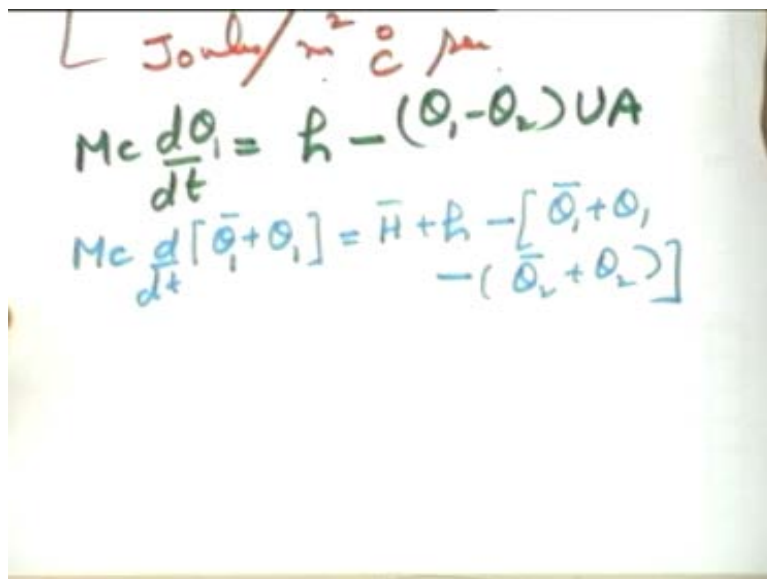 [ Joules/m² °C sec
Mc dθ₁/dt = h - (θ₁-θ₂)UA
Mc d/dt [θ̄₁+θ₁] = H̄ + h - [θ̄₁+θ₁
-(θ̄₂+θ₂)]